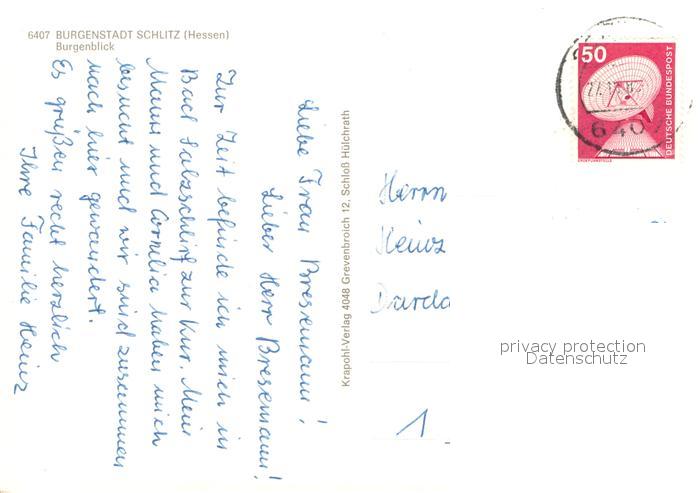 6407 BURGENSTADT SCHLITZ (Hessen)
Burgenblick
Liebe Frau Bresemann!
Lieber Herr Bresemann!
Zur Zeit befinde ich mich in
Bad Salzschlirf zur Kur. Mein
Mann und Cornelia haben mich
besucht und wir sind zusammen
nach hier gewandert.
Es grüßen recht herzlich
Ihre Familie Heinz
Krapohl-Verlag 4048 Grevenbroich 12, Schloß Hülchrath
50
DEUTSCHE BUNDESPOST
ERDEFUNKSTELLE
640
Herrn
Heinz
1
privacy protection
Datenschutz